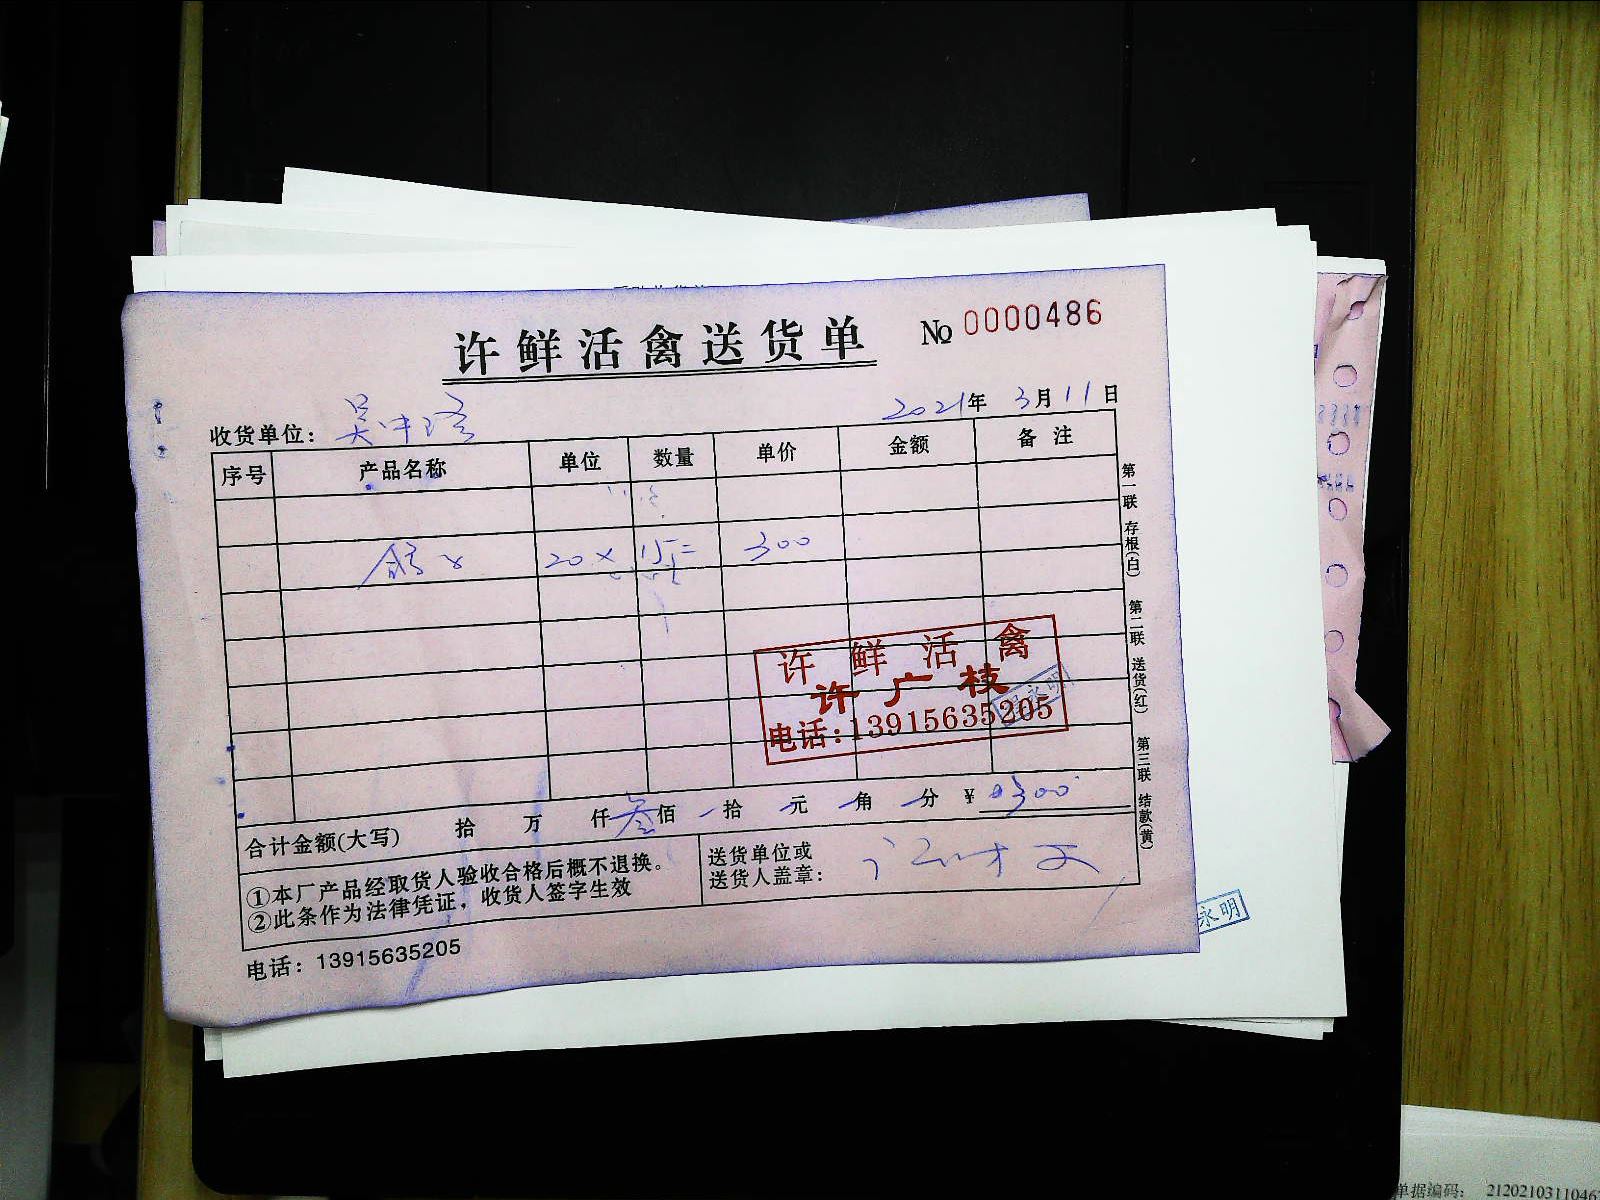 许鲜活禽送货单
№ 0000486
收货单位： 吴中
2021年 3月 11日
序号 产品名称 单位 数量 单价 金额 备注
20 × 15= 300
许鲜活禽
许广枝
电话:13915635205
永明
合计金额(大写) 拾 万 仟 叁佰 拾 元 角 分 ¥ 300
①本厂产品经取货人验收合格后概不退换。
②此条作为法律凭证，收货人签字生效
送货单位或
送货人盖章：
电话：13915635205
第一联 存根(白) 第二联 送货(红) 第三联 结款(黄)
永明
单据编码： 2120210311046